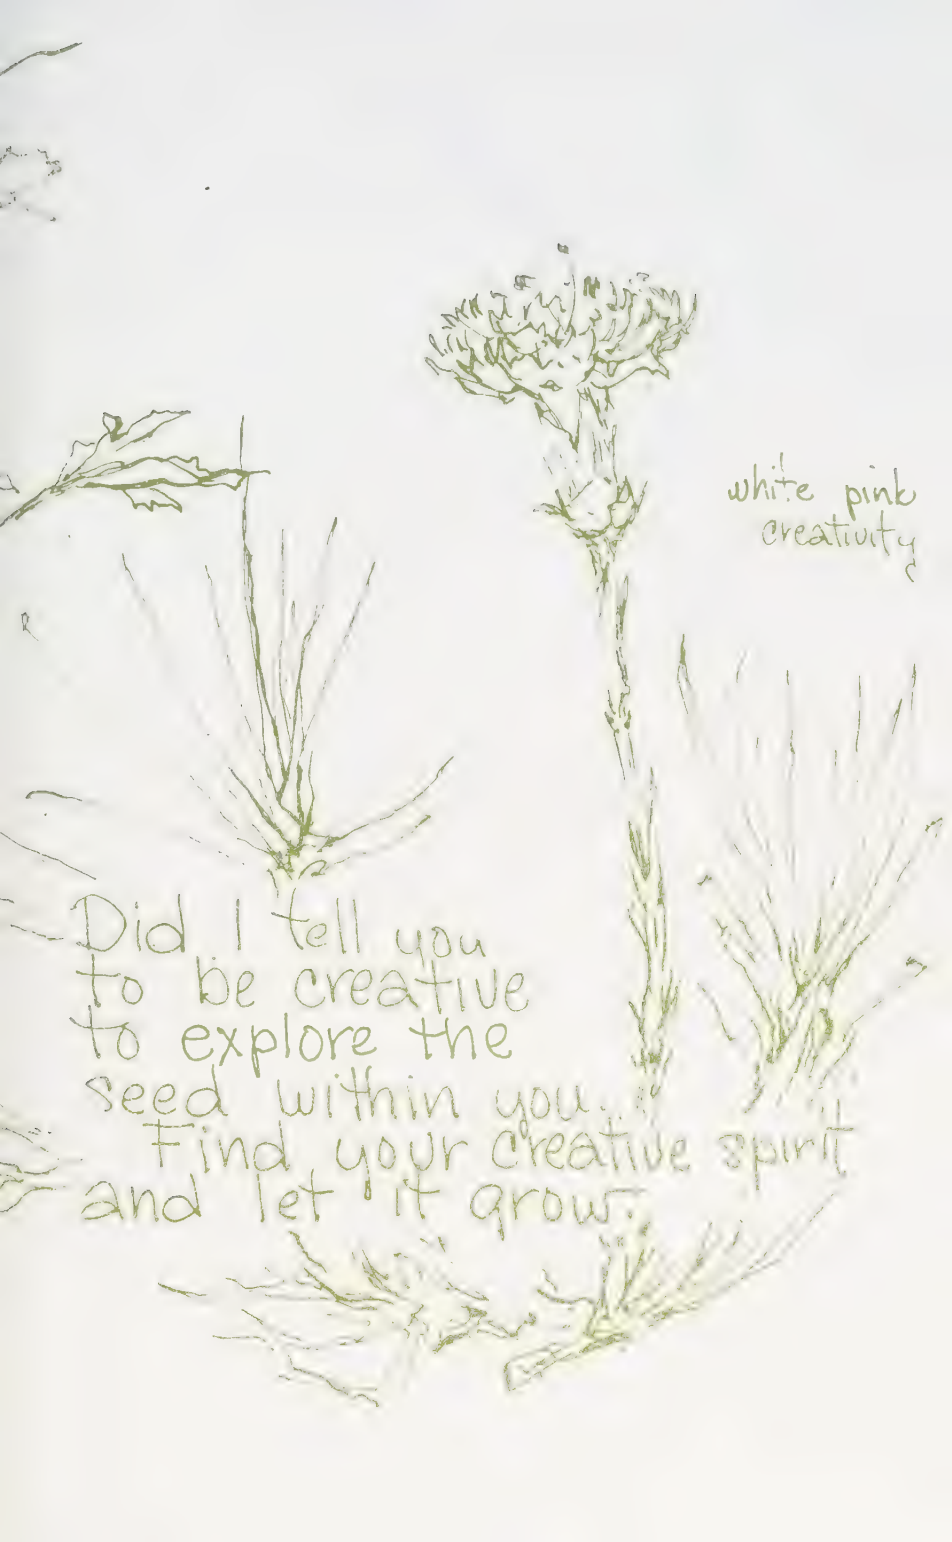 white pink
creativity
Did I tell you
to be creative
to explore the
seed within you..
Find your creative spirit
and let it grow.